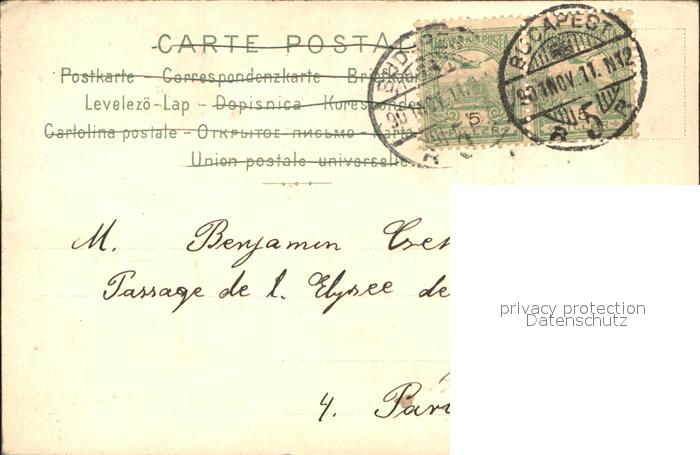 CARTE POSTAL
Postkarte - Correspondenzkarte - Briefka
Levelező-Lap - Dopisnica - Korespond
Cartolina postale - Открытое письмо - Karta
Union postale universelle
MAGYAR KIR. POSTA
5
BUDAPEST
901 NOV. 11. N12
5
M. Benjamin
Passage de l. Elysee de
4. Pari
privacy protection
Datenschutz